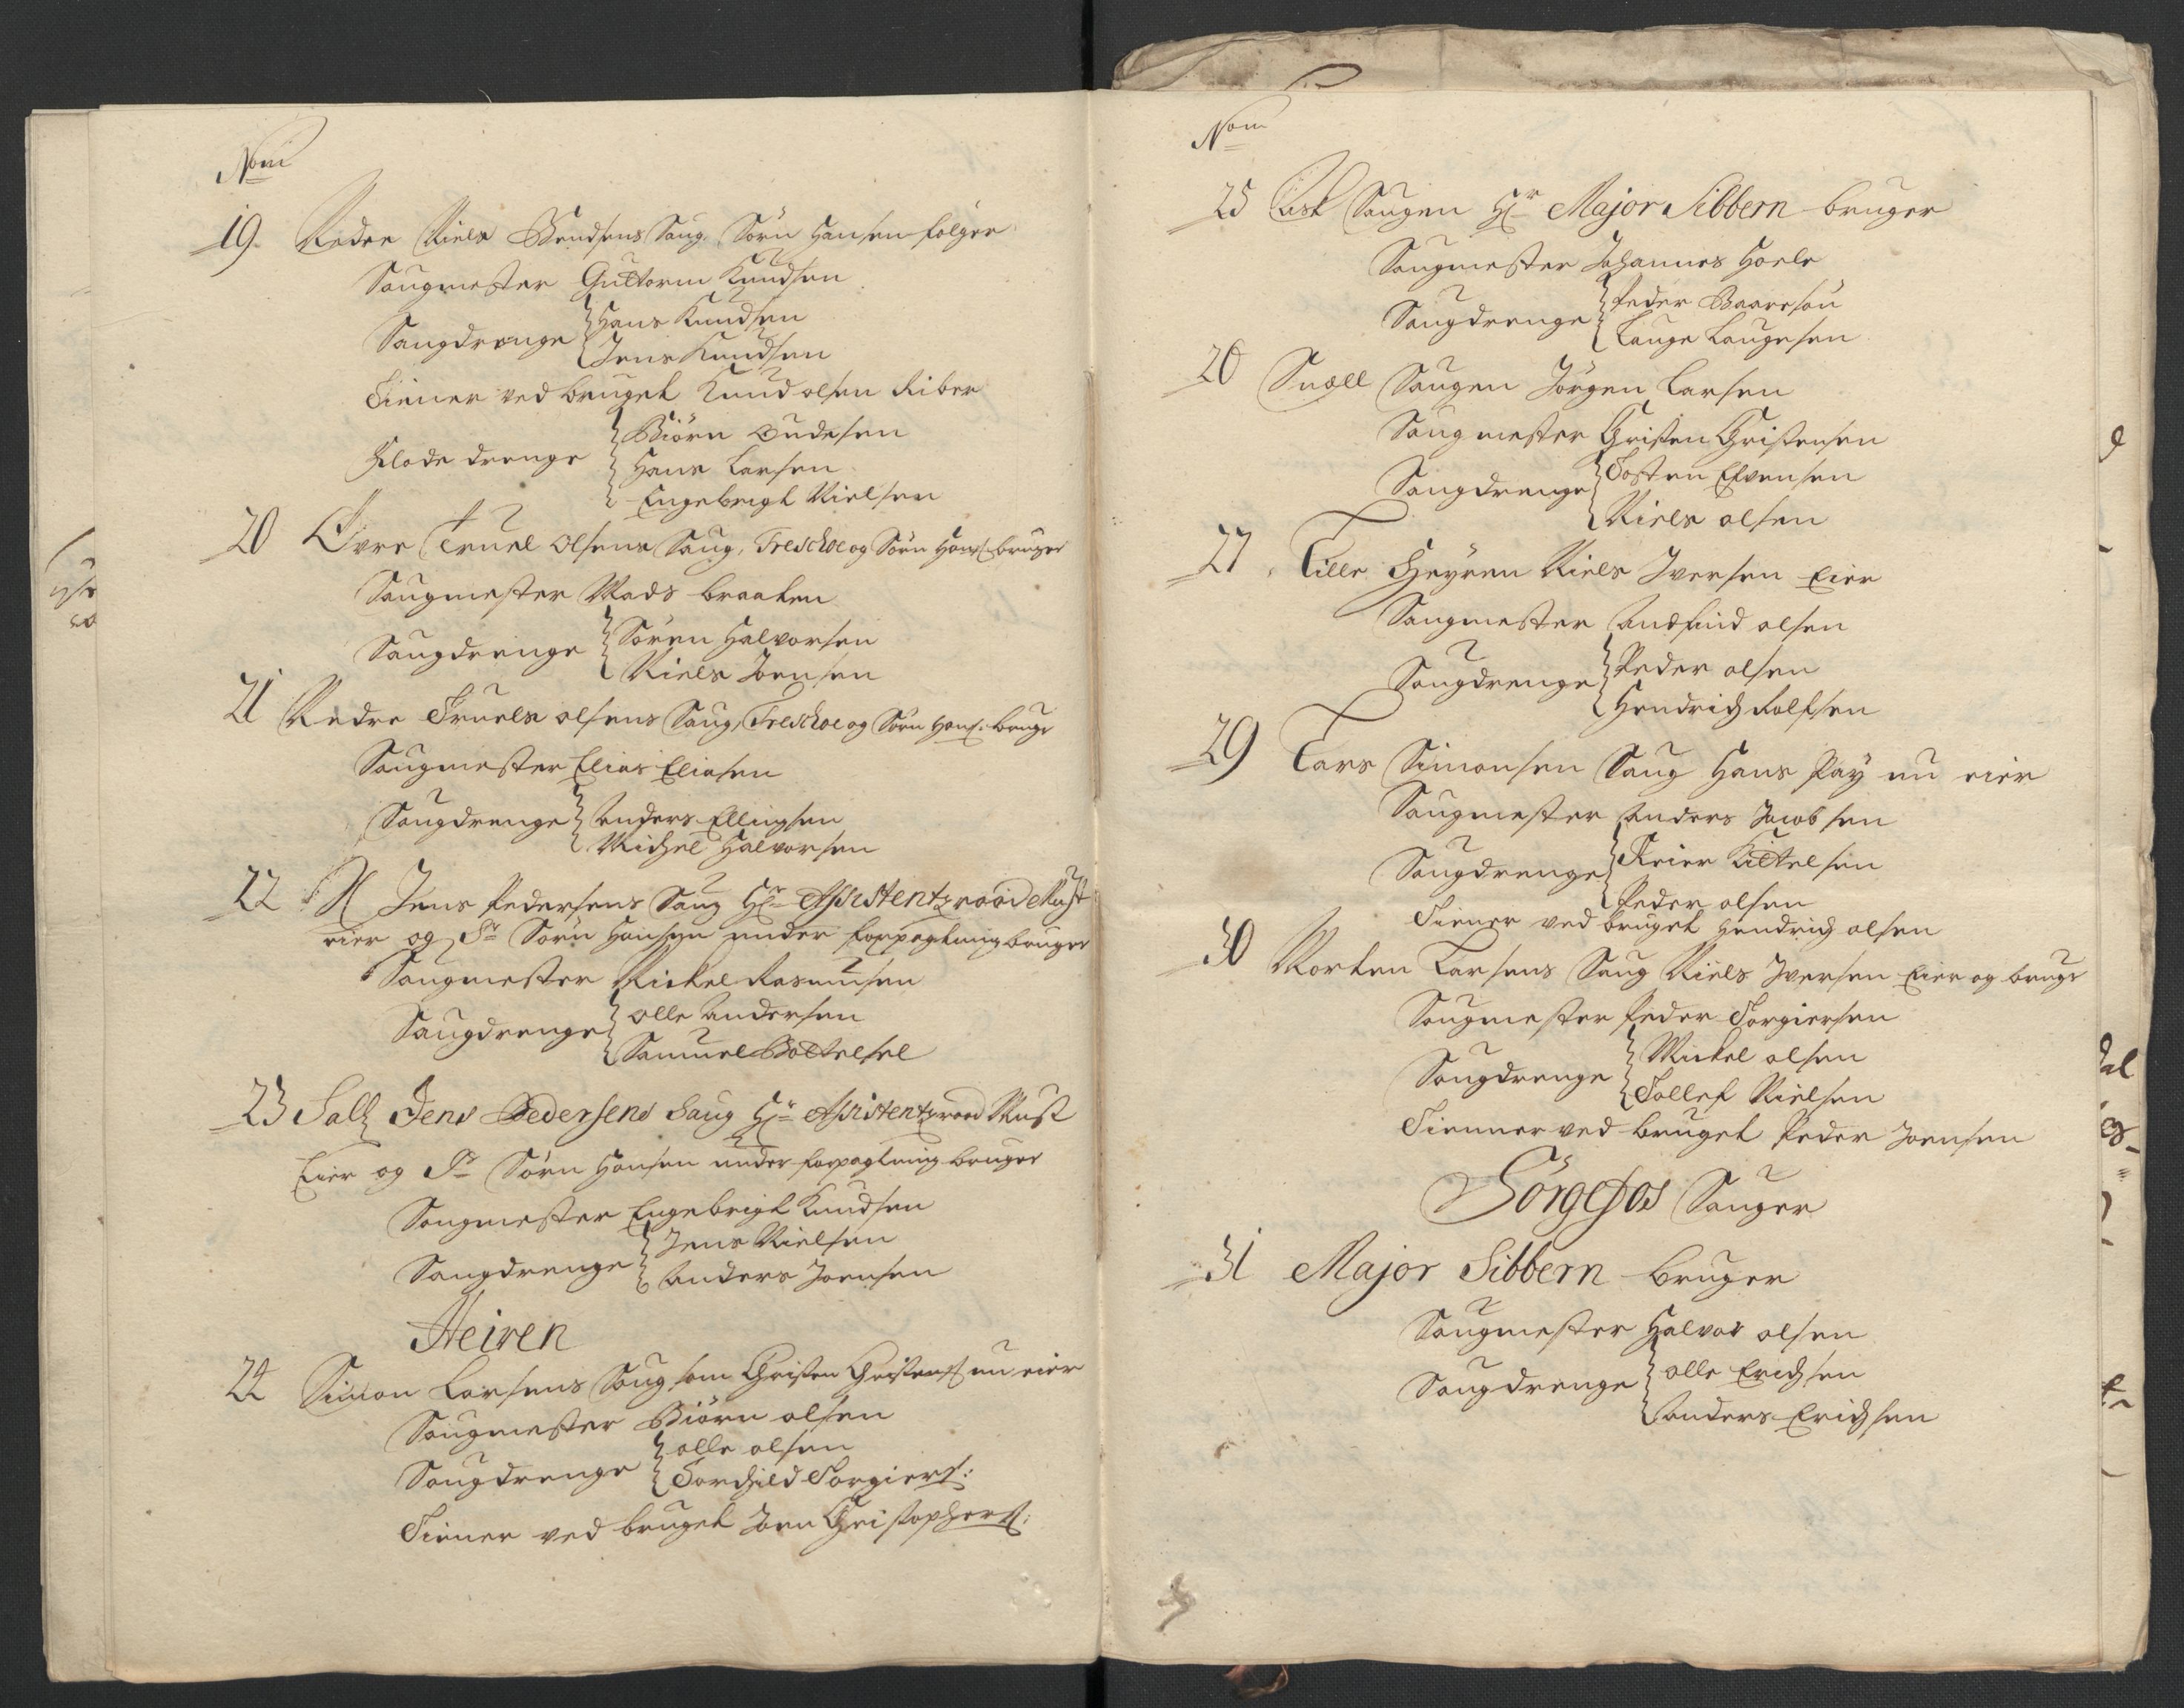 Nom
19. Nedre Niels Bendsens Saug, Sörn Hansen följer
Saugmester Guttorm Knudsen
Saugdrenge Hans Knudsen
Jens Knudsen
Tiener ved bruget Knud olsen Riber
Flode drenge Biörn Gudesen
Hans Larsen
Engebrigt Nielsen
20 Övre Truel Olsens Saug, Treschoe og Sörn Hans: bruger
Saugmester Mads braaten
Saugdrenge Sören Halvorsen
Niels Joensen
21 Nedre Truels olsens Saug, Treschoe og Sörn Hans: bruge
Saugmester Elias Eliasen
Saugdrenge Anders Ellingsen
Michel Halvorsen
22 N Jens Pedersens Saug Hr Assistentzraad Must
eier og Sr Sörn Hansen under forpagtning bruger
Saugmester Mickel Rasmusen
Saugdrenge olle Andersen
Samuel
23 Jens Pedersens Saug Hr Assistentzraad Must
Eier og Sr Sörn Hansen under forpagtning bruger
Saugmester Engebrigt Knudsen
Saugdrenge Jens Nielsen
Anders Joensen
Heiren
24 Simon Larsens Saug som Christen Christens: nu eier
Saugmester Biörn olsen
Saugdrenge olle olsen
Torchild Torgiers:
Tiener ved bruget Joen Christophers:
Nom
25 Ask Saugen Hr Major Sibbern bruger
Saugmester Johannes Hoele
Saugdrenge Peder Baaresön
Lauge Laugesen
26 Snell Saugen Jörgen Larsen
Saugmester Christen Christensen
Saugdrenge Tosten Evensen
Niels olsen
27 Lille Heyren Niels Iversen Eier
Saugmester Andfind olsen
Saugdrenge Peder olsen
Hendrich Rolfsen
29 Lars Simonsen Saug Hans Pay nu eier
Saugmester Anders Jacobsen
Saugdrenge Reier Kittelsen
Peder olsen
Tiener ved bruget Hendrich olsen
30 Morten Larsens Saug Niels Iversen Eier og bruge
Saugmester Peder Torgiersen
Saugdrenge Mickel olsen
Tollef Nielsen
Tienner ved bruget Peder Joensen
Sörgefos Sauger
31 Major Sibbern bruger
Saugmester Halvor olsen
Saugdrenge olle Erichsen
Anders Erichsen